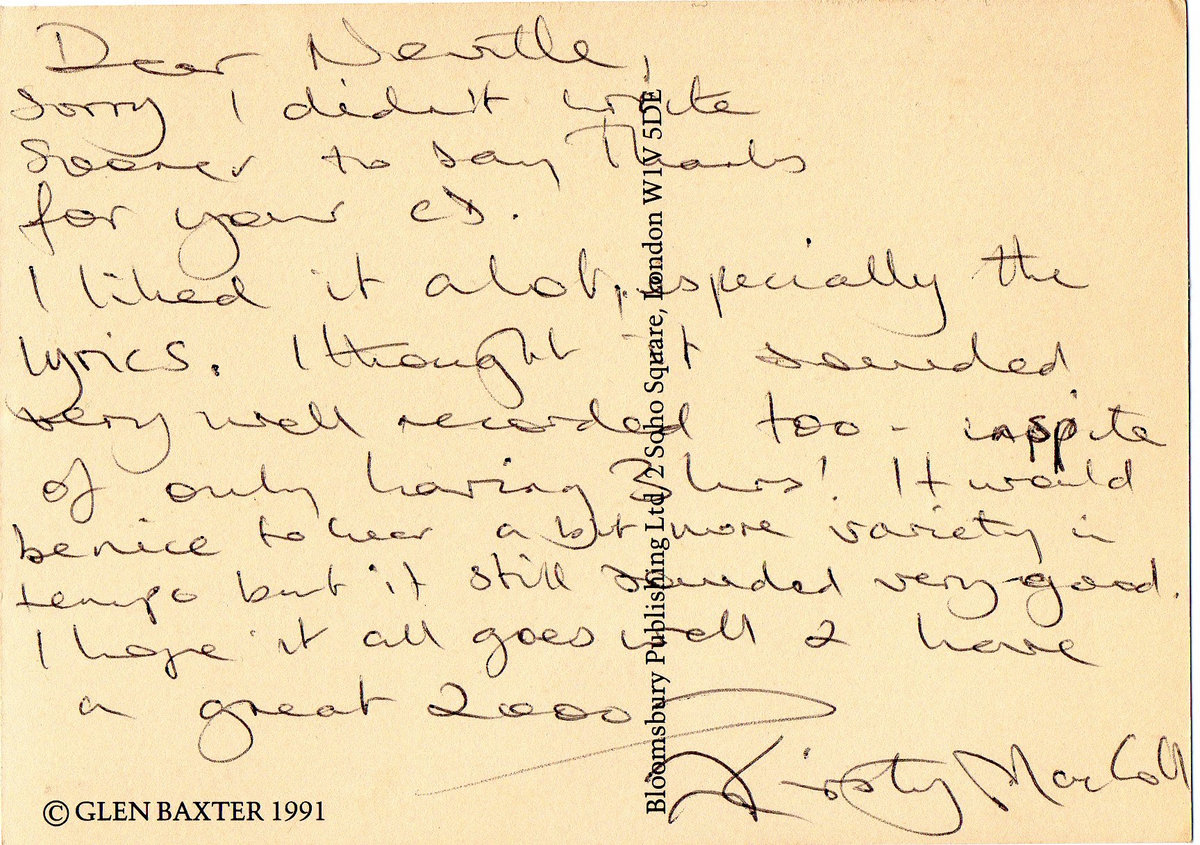 Dear Neville,
Sorry I didn't write
sooner to say Thanks
for your CD.
I liked it alot, especially the
lyrics. I thought it sounded
very well recorded too - inspite
of only having 3hrs! It would
be nice to hear a bit more variety in
tempo but it still sounded very good.
I hope it all goes well & have
a great 2000
Kirsty MacColl
© GLEN BAXTER 1991
Bloomsbury Publishing Ltd, 2 Soho Square, London W1V 5DE